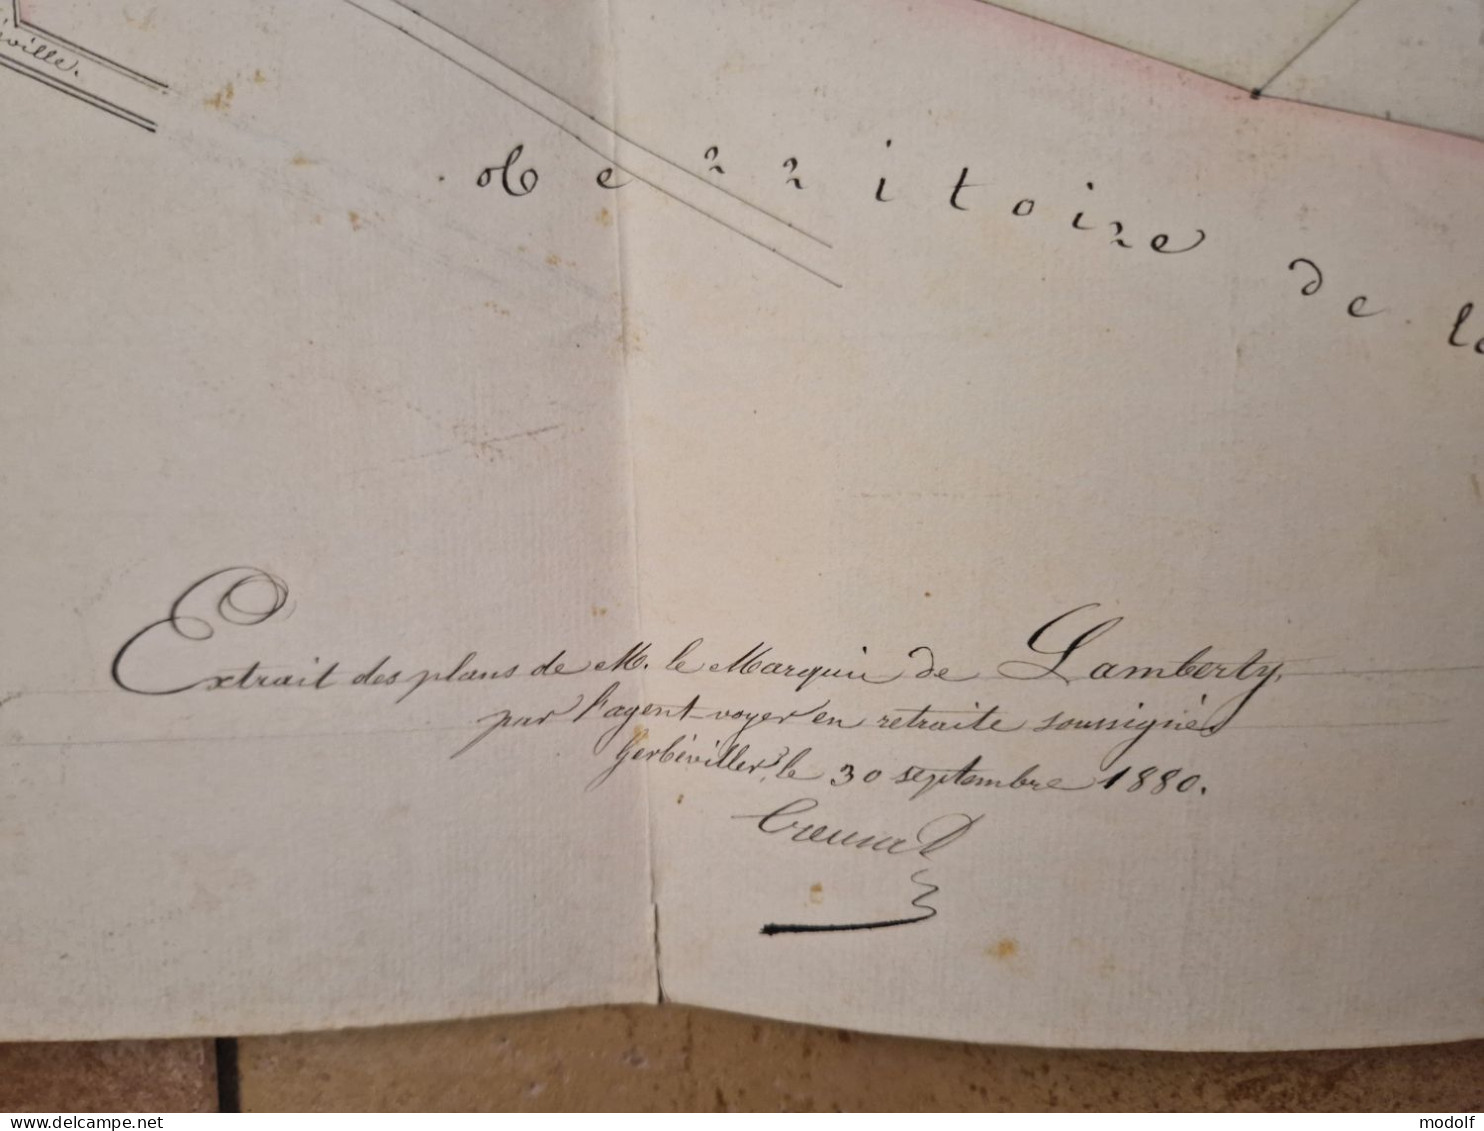 ville.
Territoire de la
Extrait des plans de M. le Marquis de Lamberty,
par l'agent-voyer en retraite soussigné.
Gerbéviller, le 30 septembre 1880.
delcampe.net
modolf